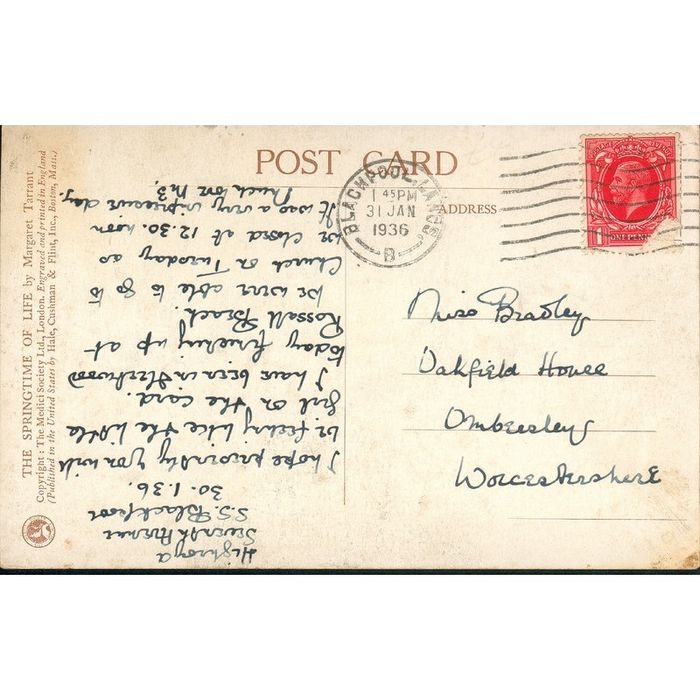 POST CARD
ADDRESS
BLACKPOOL. LANCS
1 45PM
31 JAN
1936
B
1 ONE PENNY
Miss Bradley
Oakfield House
Ombersley
Worcestershire
Seventh Avenue
S.S. Blackpool
30.1.36.
I hope presently you will
be feeling like the little
girl on the card.
I have been in Fleetwood
today finishing up at
Rossall Beach.
We were able to go to
Church on Tuesday as
we closed at 12.30. noon
It was a very impressive day.
THE SPRINGTIME OF LIFE by Margaret Tarrant
Copyright: The Medici Society Ltd., London. Engraved and printed in England
(Published in the United States by Hale, Cushman & Flint, Inc., Boston, Mass.)